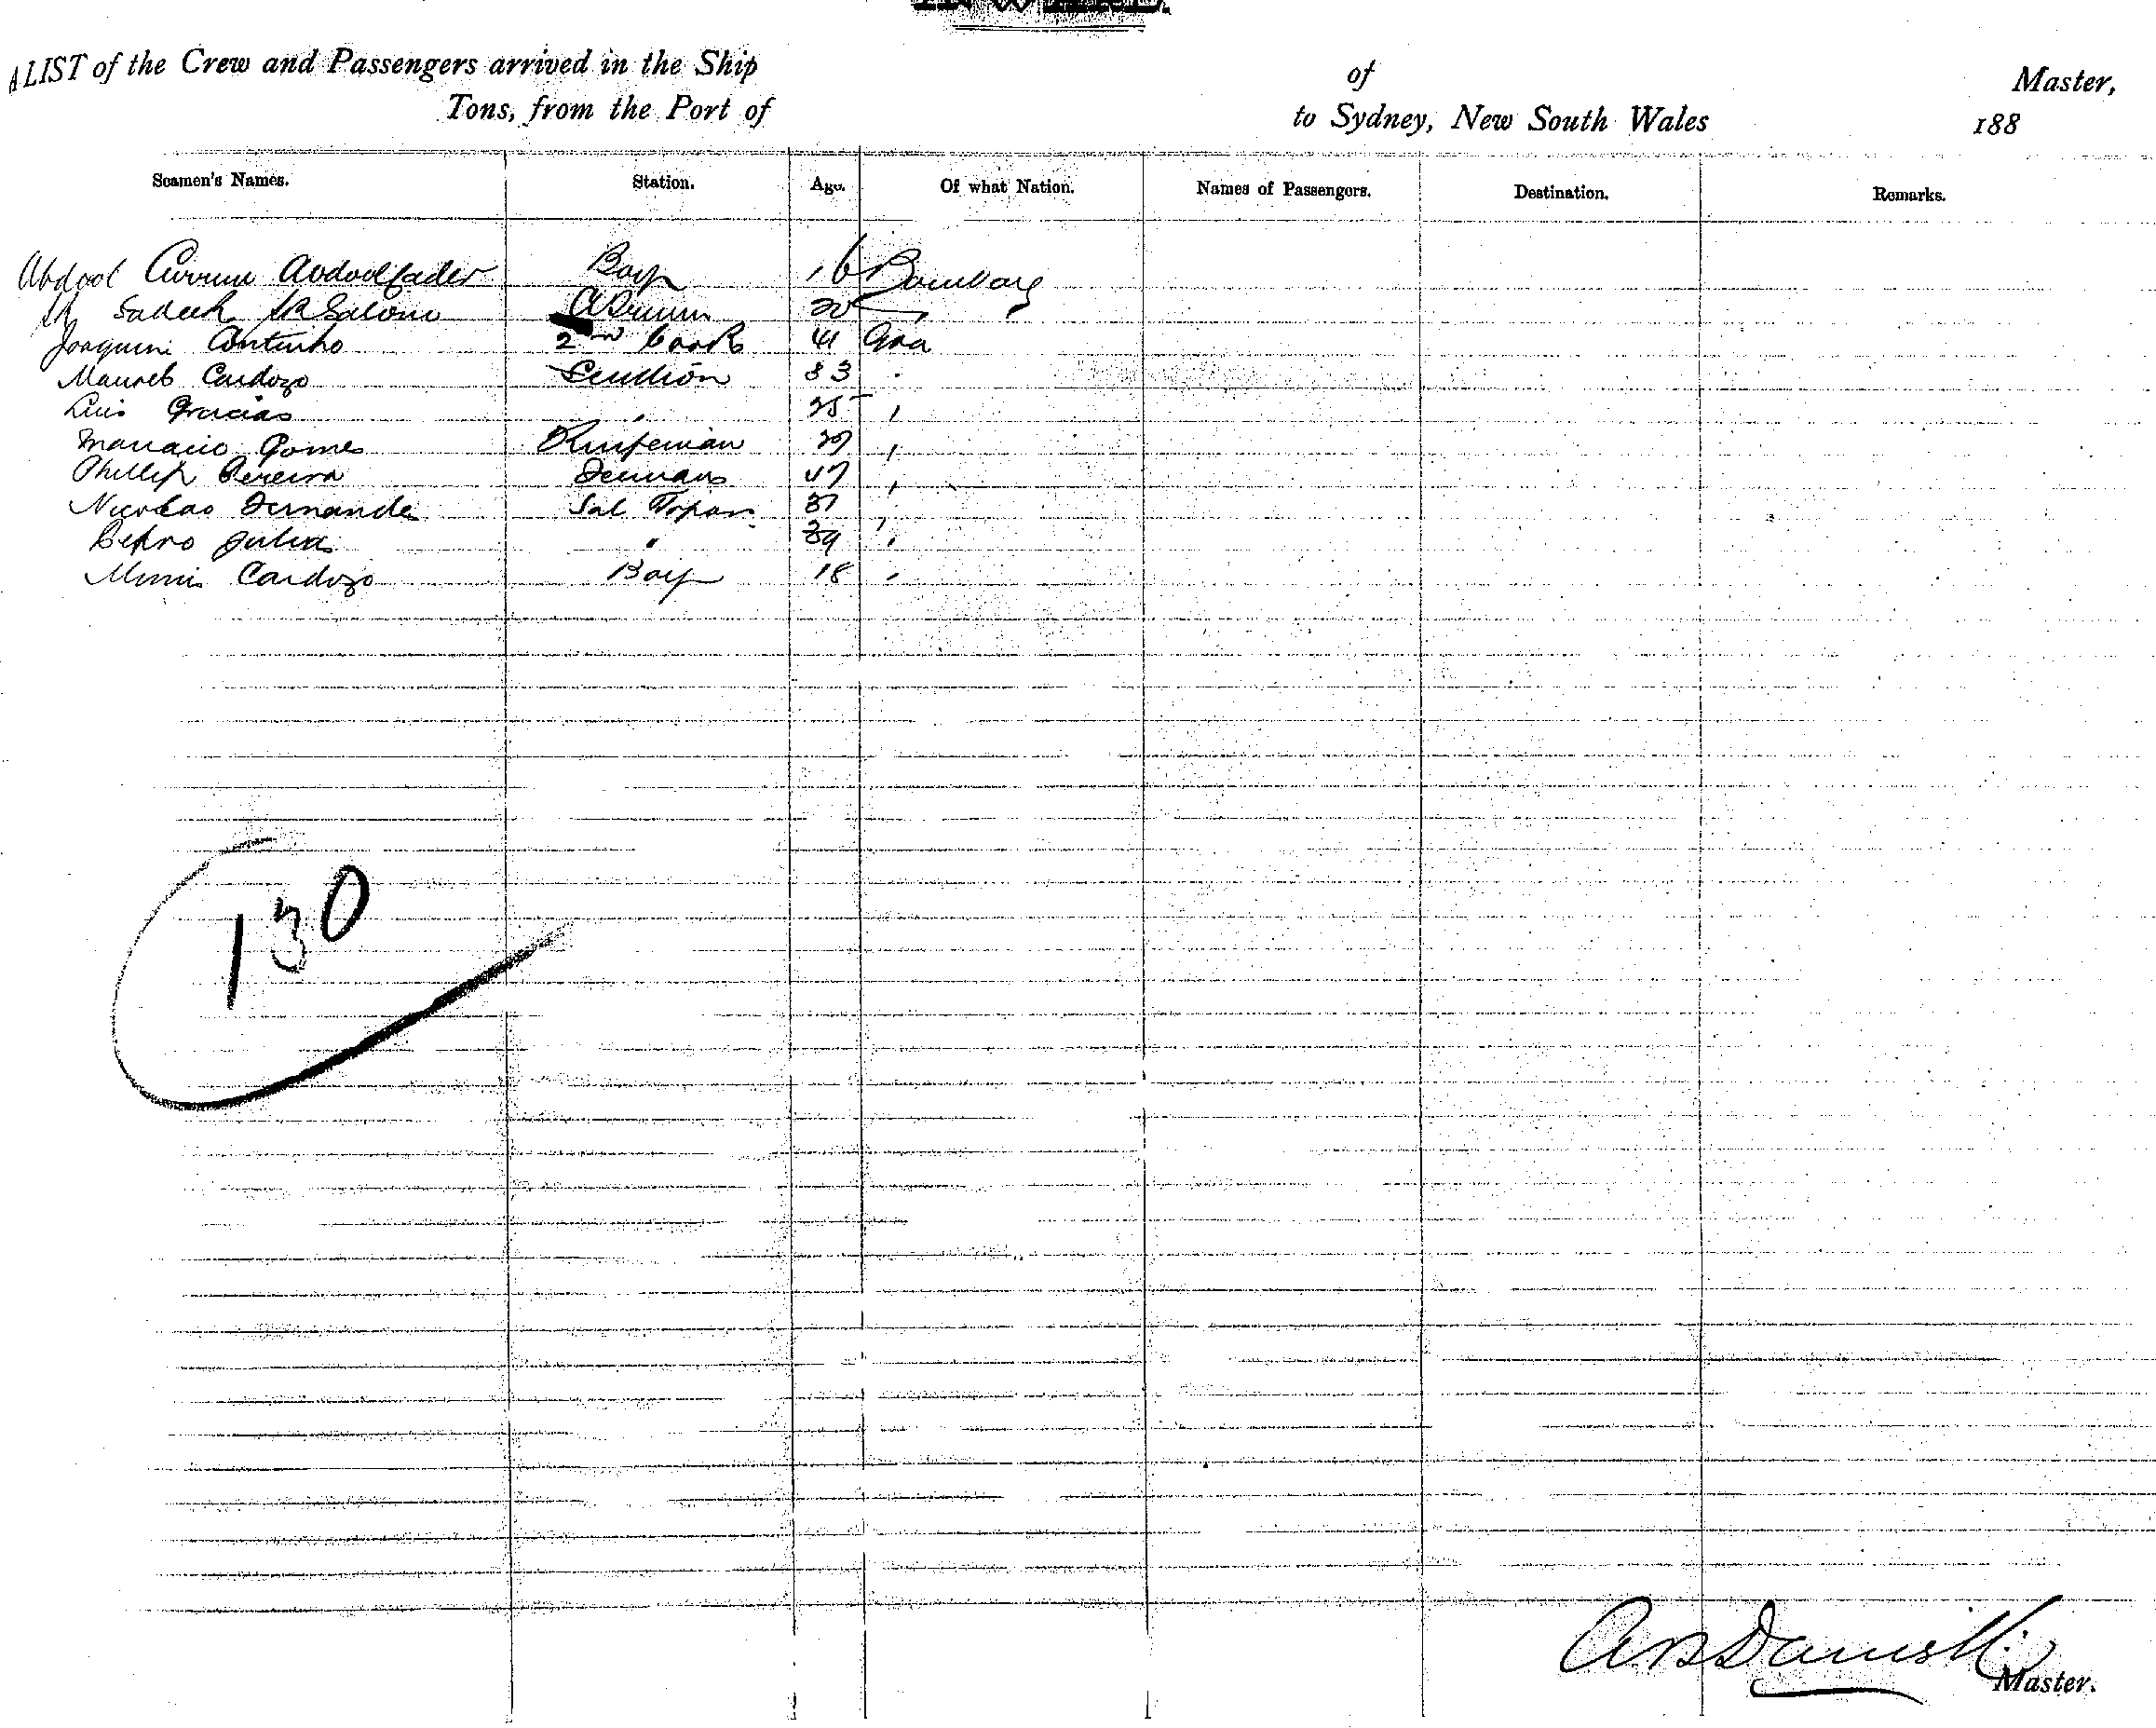 A LIST of the Crew and Passengers arrived in the Ship of Master,
Tons, from the Port of to Sydney, New South Wales 188
Seamen's Names. Station. Age. Of what Nation. Names of Passengers. Destination. Remarks.
Abdool Currum Abdoolcader Boy 16 Bombay
Sadeck 20
Joaquim Continho 2nd Cook 41 Goa
Cardozo Scullion 33
Luis Gracias " 25 "
Gomes 29 "
Phillip Pereira 47 "
Nicolao Fernandes Sal Topas 37 "
Pedro Julia " 39 "
Cardozo Boy 18 "
130
Master.